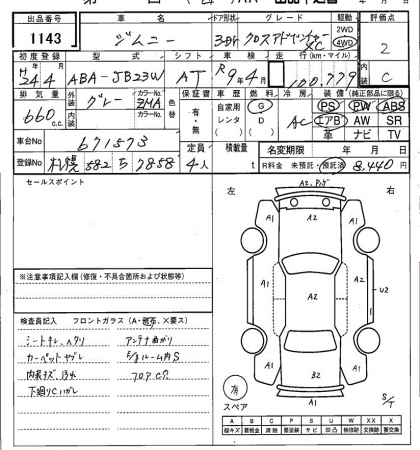 出品番号 車名 ドア形状 グレード 駆動 評価点
1143 ジムニー 3DR クロスアドベンチャー XC 2WD 4WD 2
初度登録 型式 シフト 車検 走行(km・マイル) 内
H24.4 ABA-JB23W AT R9年4月 100,779 C
排気量 外装 カラーNo. 色替 保証書 車歴 燃料 冷房 装備(純正部品に限る)
660c.c. グレー ZMA 有・無 自家用 レンタ G D AC PS PW ABS
内装 カラーNo. エアB AW SR
革 ナビ TV
車台No 671573 定員 積載量 名変期限 年 月 日
登録No 札幌 582 ち 7858 4人 t R料金 未預託・預託済 8,440円
セールスポイント 左 右
A2
A1 A2 A1
A1 A2 A1 U2
A1 B2 A1
A1
※注意事項記入欄(修復・不具合箇所および状態等)
検査員記入 フロントガラス(A・飛石・×要ス)
シートキレ、ヘタリ アンテナ曲がり
カーペットヤブレ
内装キズ、汚れ フロアC穴
下廻りCハガレ
有
スペア S/T
A B C P S U W X XX
線キズ 要板金 腐蝕 要塗装 サビ 凹凸 補修跡 要交換